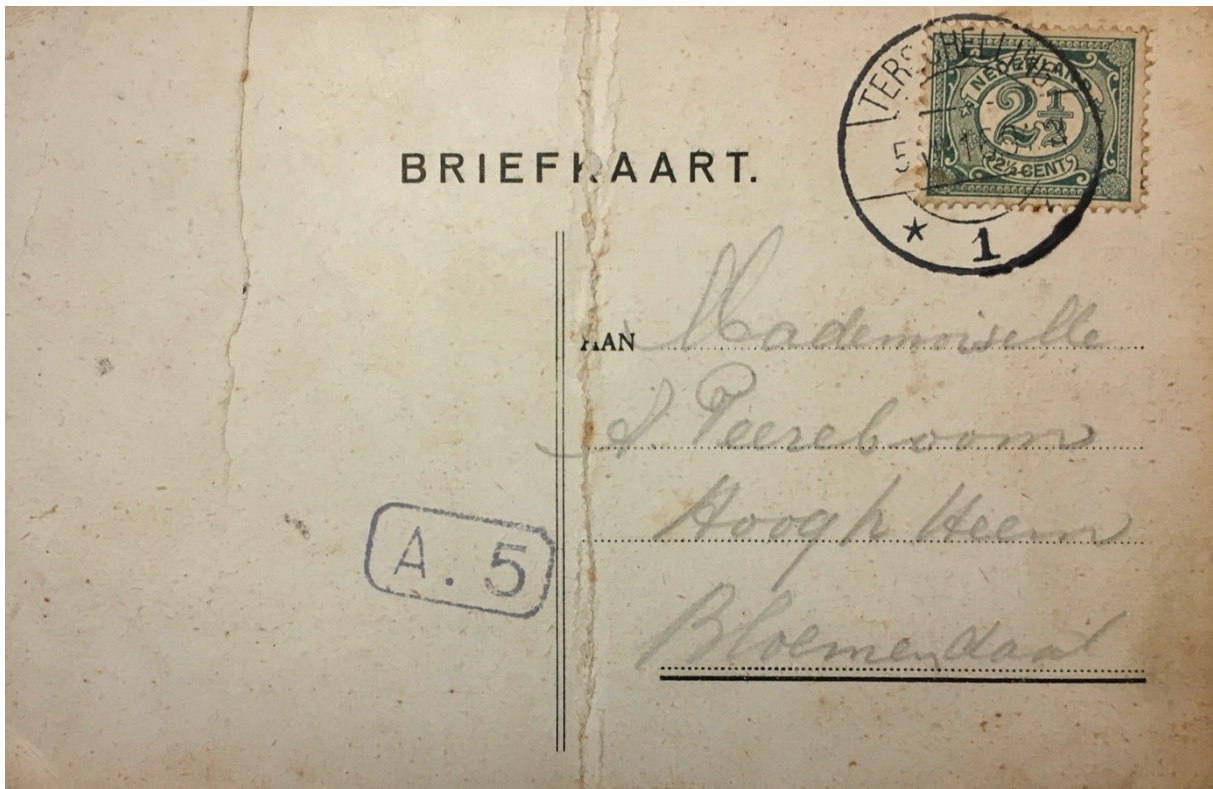 TERSCHELLING
NEDERLAND
2½
2½ CENT
5
1
BRIEFKAART.
AAN Mademoiselle
Peereboom
Hoogh Heem
Bloemendaal
A. 5